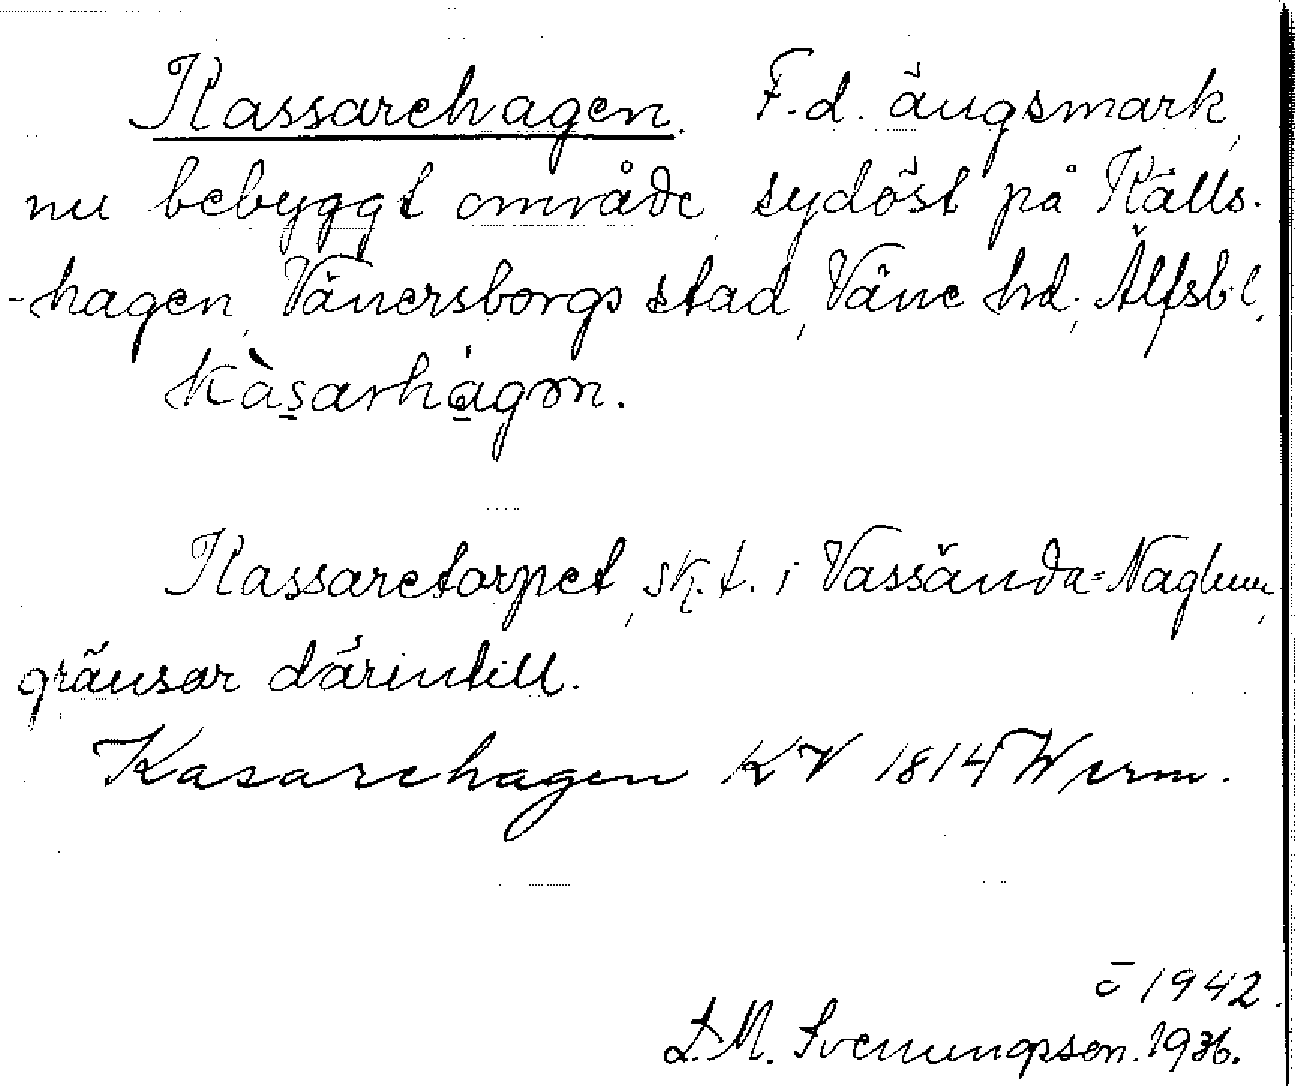 Kassarehagen. F.d. ängsmark,
nu bebyggt område, sydöst på Källs-
-hagen, Vänersborgs stad, Väne hd, Älfsb. l.
kàsarhágən.
Kassaretorpet, sk.t. i Vassända-Naglum,
gränsar därintill.
Kasarehagen KV 1814 Werm.
c̄ 1942.
L. M. Svenungsson. 1936.